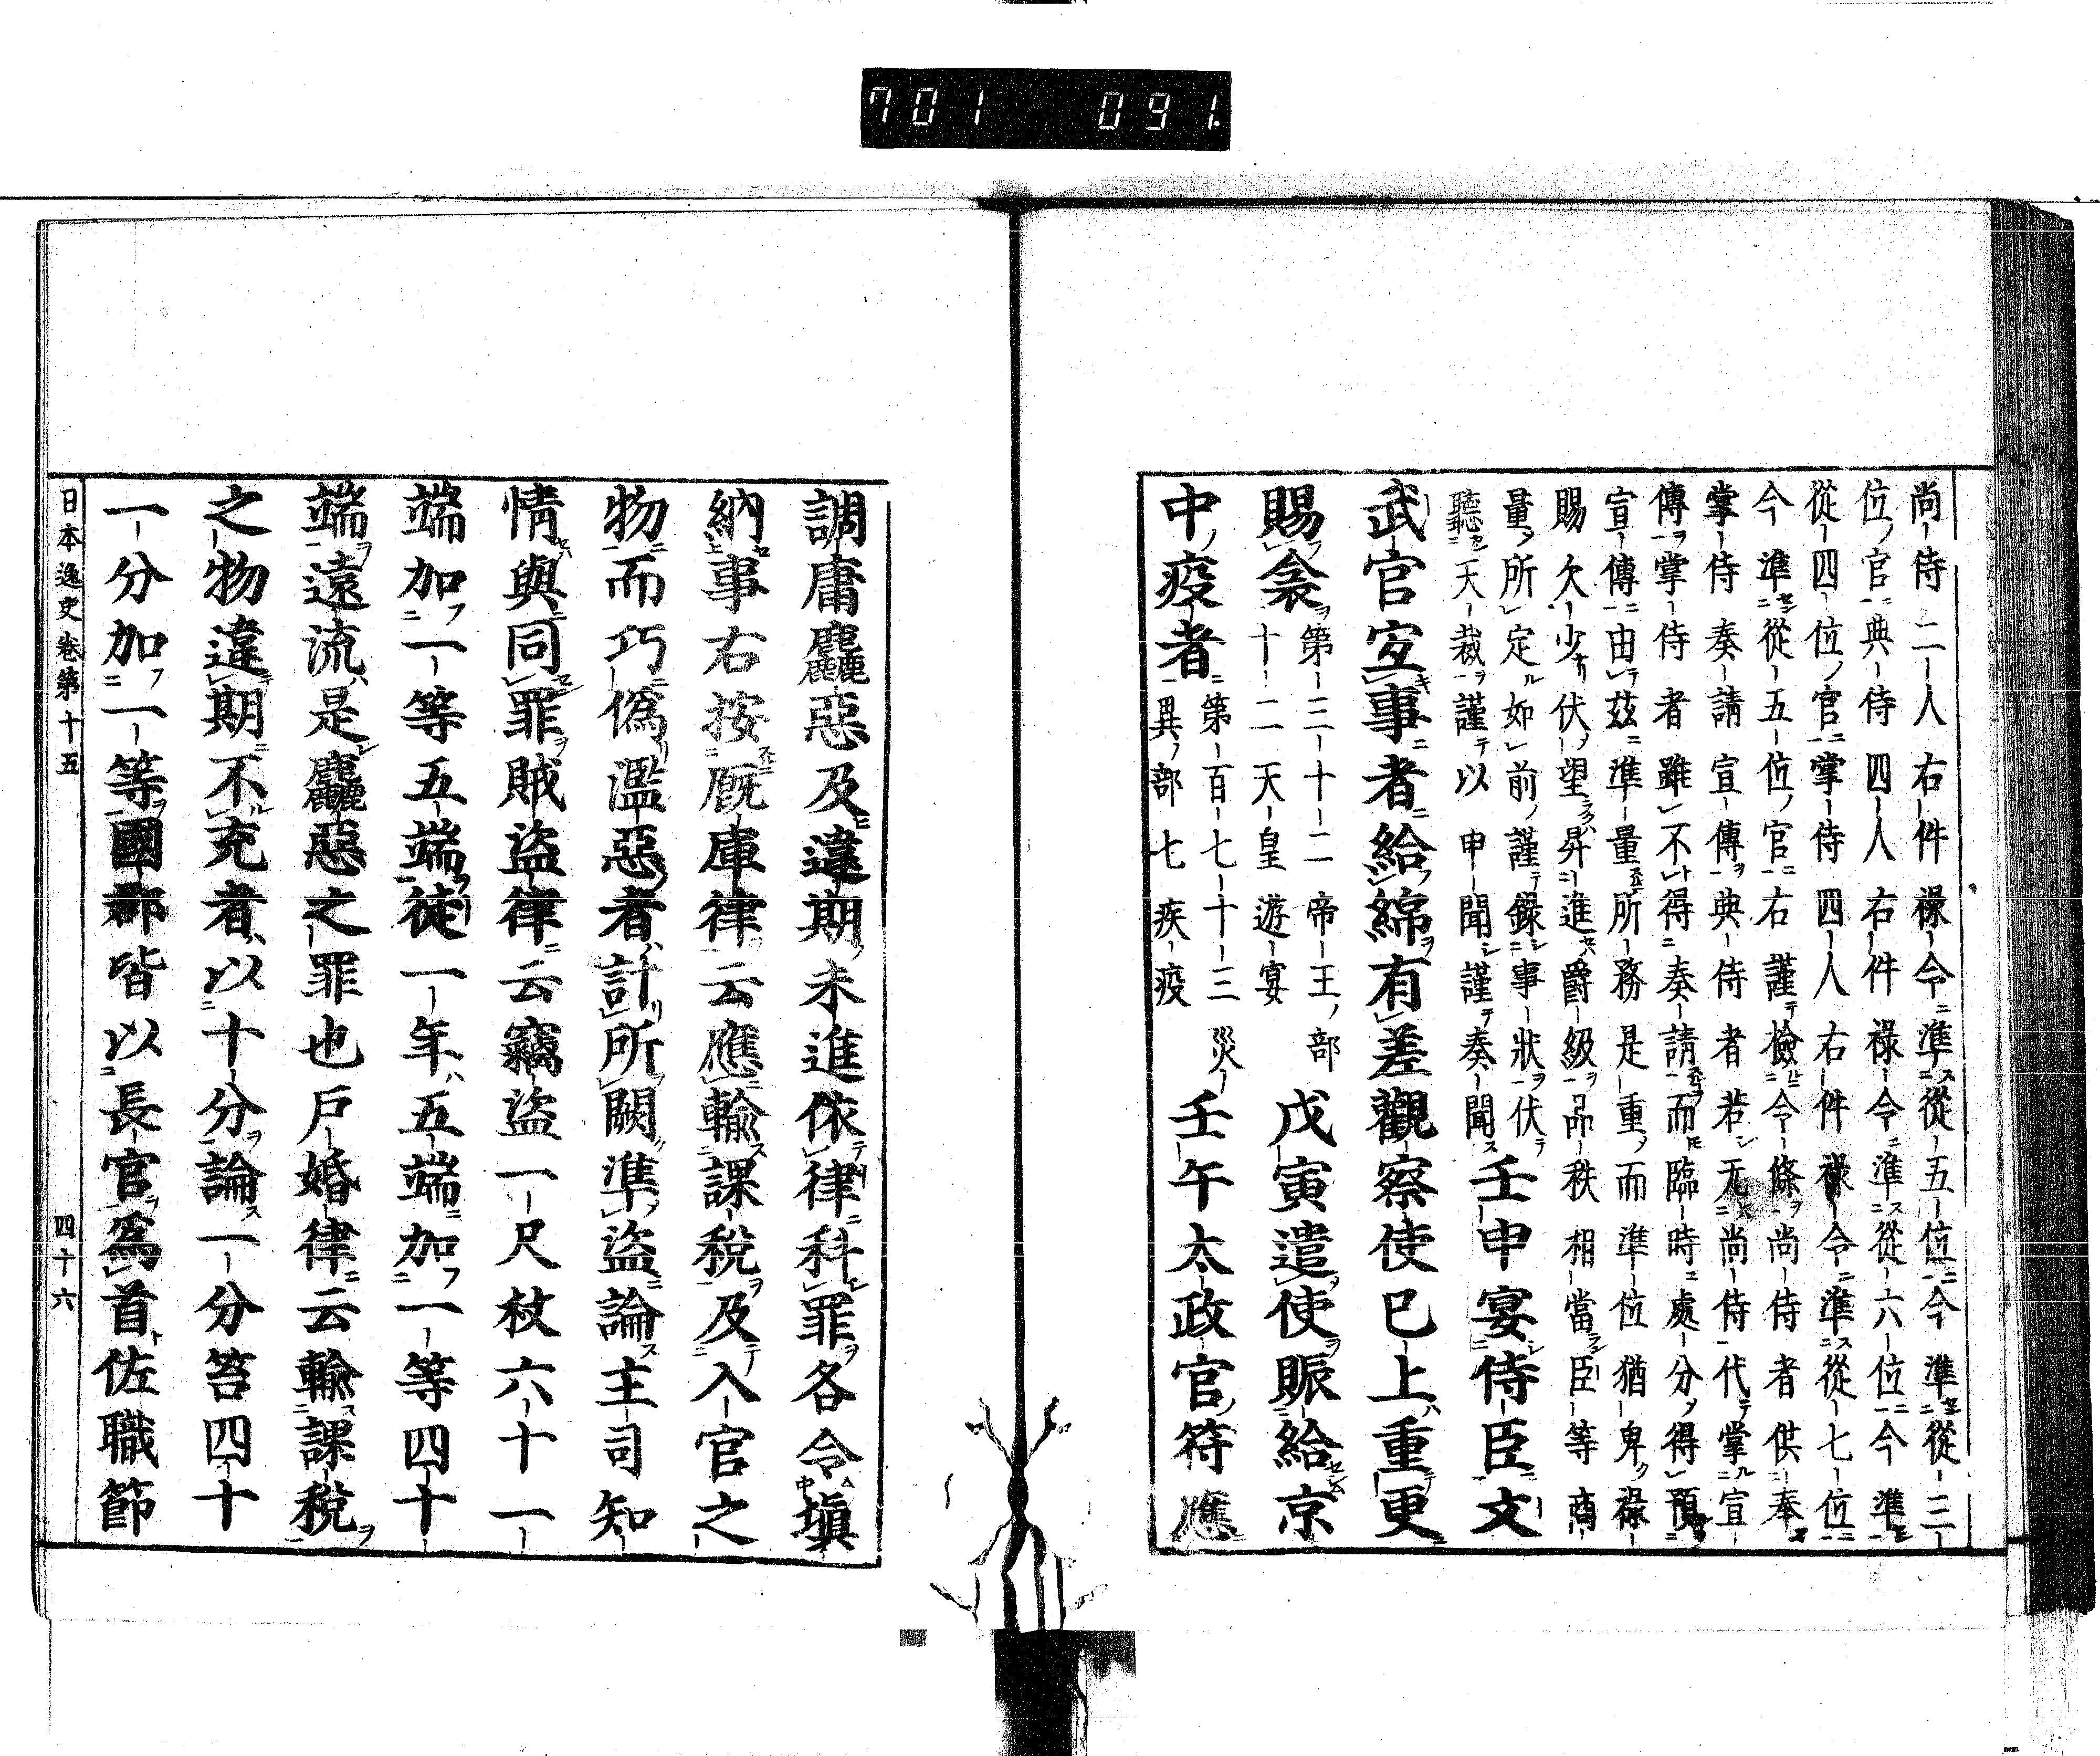 701 091.
尚侍二人右件祿令準從五位今準從三
位官典侍四人右件祿令準從六位今準
從四位官掌侍四人右件祿令準從七位
今準從五位官右謹檢令條尚侍者供奉
掌侍奏請宣傳典侍者若无尚侍代掌宣
傳掌侍者雖不得奏請而臨時處分得預
宣傳由茲準量所務是重而準位猶卑祿
賜欠少伏望昇進爵級品秩相當臣等商
量所定如前謹錄事狀伏
聽天裁謹以申聞謹奏聞壬申宴侍臣文
武官寔事者給綿有差觀察使已上重更
賜衾第三十二帝王部十二天皇遊宴戊寅遣使賑給京
中疫者第百七十三災異部七疾疫壬午太政官符應
調庸麤惡及違期未進依律科罪各令塡
納事右按厩庫律云應輸課稅及入官之
物而巧僞濫惡者計所闕準盜論主司知
情與同罪賊盜律云竊盜一尺杖六十一
端加一等五端徒一年五端加一等四十
端遠流是麤惡之罪也戶婚律云輸課稅
之物違期不充者以十分論一分笞四十
一分加一等國郡皆以長官爲首佐職節
日本逸史卷第十五 四十六